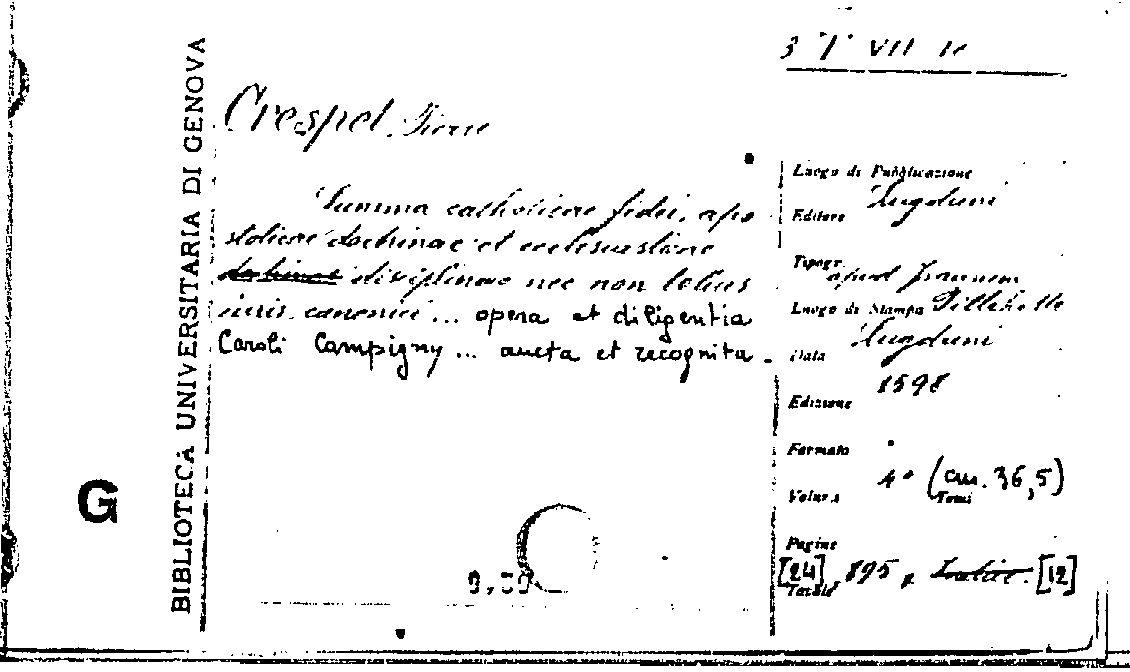 3 T VII 10
BIBLIOTECA UNIVERSITARIA DI GENOVA
Crespel, Pierre
Summa catholicae fidei, apo
stolicae doctrinae et ecclesiasticae
disciplinae nec non totius
iuris canonici ... opera et diligentia
Caroli Campigny ... aucta et recognita.
Luogo di Pubblicazione
Lugduni
Editore
Tipogr.
apud Joannem
Luogo di Stampa Pillehotte
Lugduni
Data
1598
Edizione
Formato
4° (cm. 36,5)
Volumi
Tomi
Pagine
[24], 895, [12]
Tavole
G